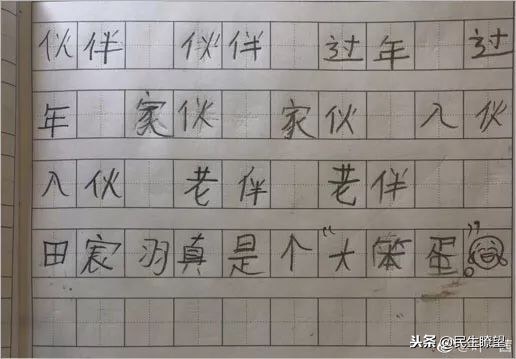 伙伴 伙伴 过年 过
年 家伙 家伙 入伙
入伙 老伴 老伴
田宸羽真是个“大笨蛋”
头条 @民生瞭望